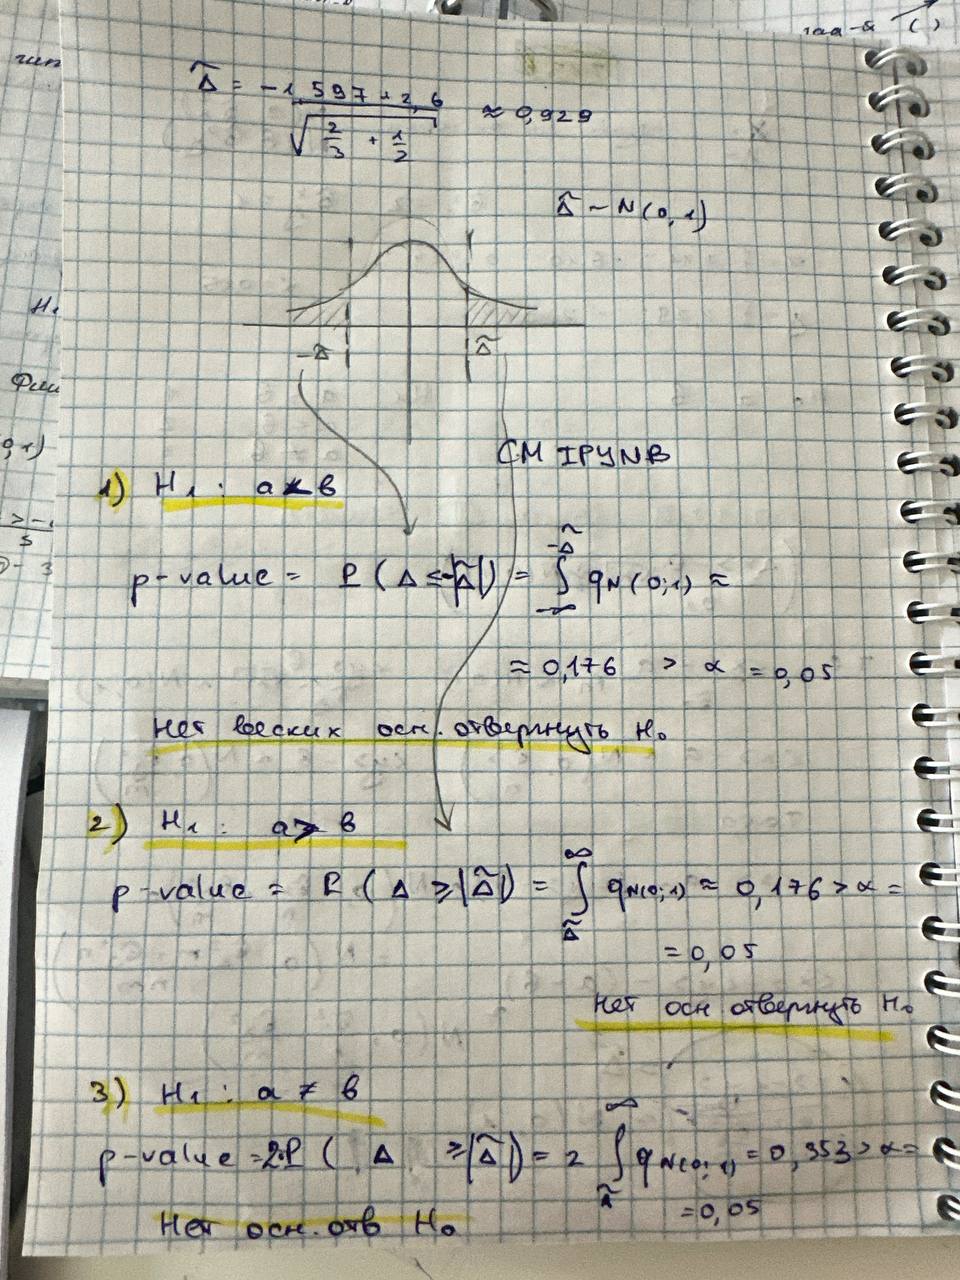 Δ̃ = (-1,597 + 2,6) / √(2/3 + 1/2) ≈ 0,929
Δ̃ ~ N(0,1)
-Δ̃ Δ̃
СМ IPYNB
1) H₁ : a < b
p-value = P(Δ ≤ -|Δ̃|) = ∫_{-∞}^{-Δ̃} q N(0;1) ≈
≈ 0,176 > α = 0,05
Нет веских осн. отвергнуть H₀
2) H₁ : a > b
p-value = P(Δ ≥ |Δ̃|) = ∫_{Δ̃}^{∞} q N(0;1) ≈ 0,176 > α =
= 0,05
Нет осн отвергнуть H₀
3) H₁ : a ≠ b
p-value = 2·P(Δ ≥ |Δ̃|) = 2 ∫_{Δ̃}^{∞} q N(0;1) = 0,353 > α =
= 0,05
Нет осн. отв H₀